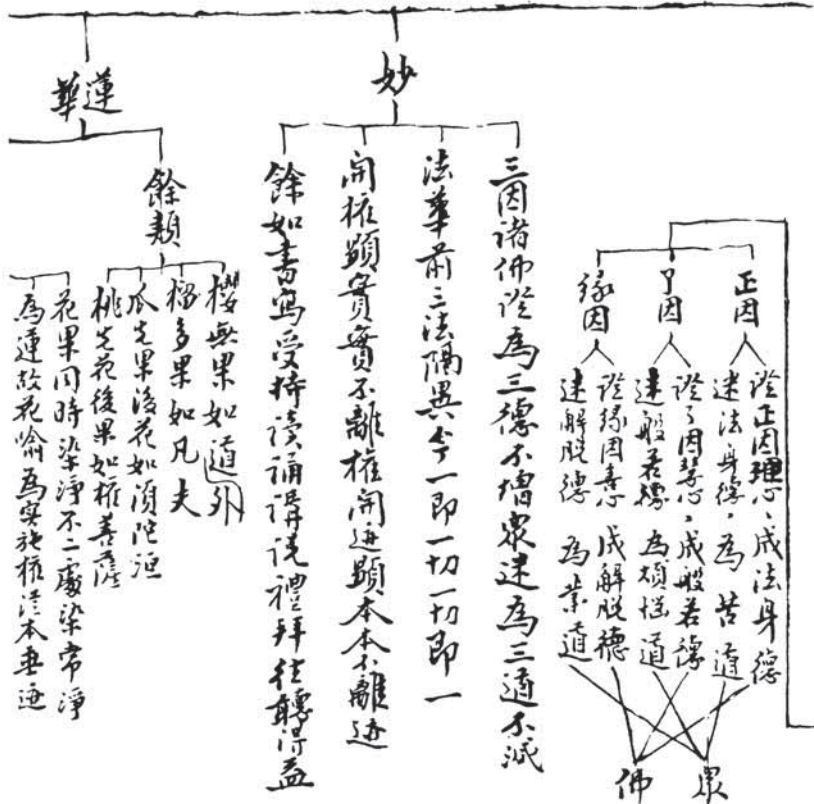 正因
證正因理心、成法身德
迷法身德、為苦道
了因
證了因慧心、成般若德
迷般若德為煩惱道
緣因
證緣因善心成解脫德
迷解脫德為業道
眾
佛
妙
三因諸佛證為三德不增眾迷為三道不減
法華前三法隔異今一即一切一切即一
開權顯實實不離權開迹顯本本不離迹
餘如書寫受持讀誦講說禮拜往聽得益
蓮華
餘類
櫻無果如道外
榴多果如凡夫
瓜先果後花如須陀洹
桃先花後果如權菩薩
花果同時染淨不二處染常淨
為蓮故花喻為實施權從本垂迹